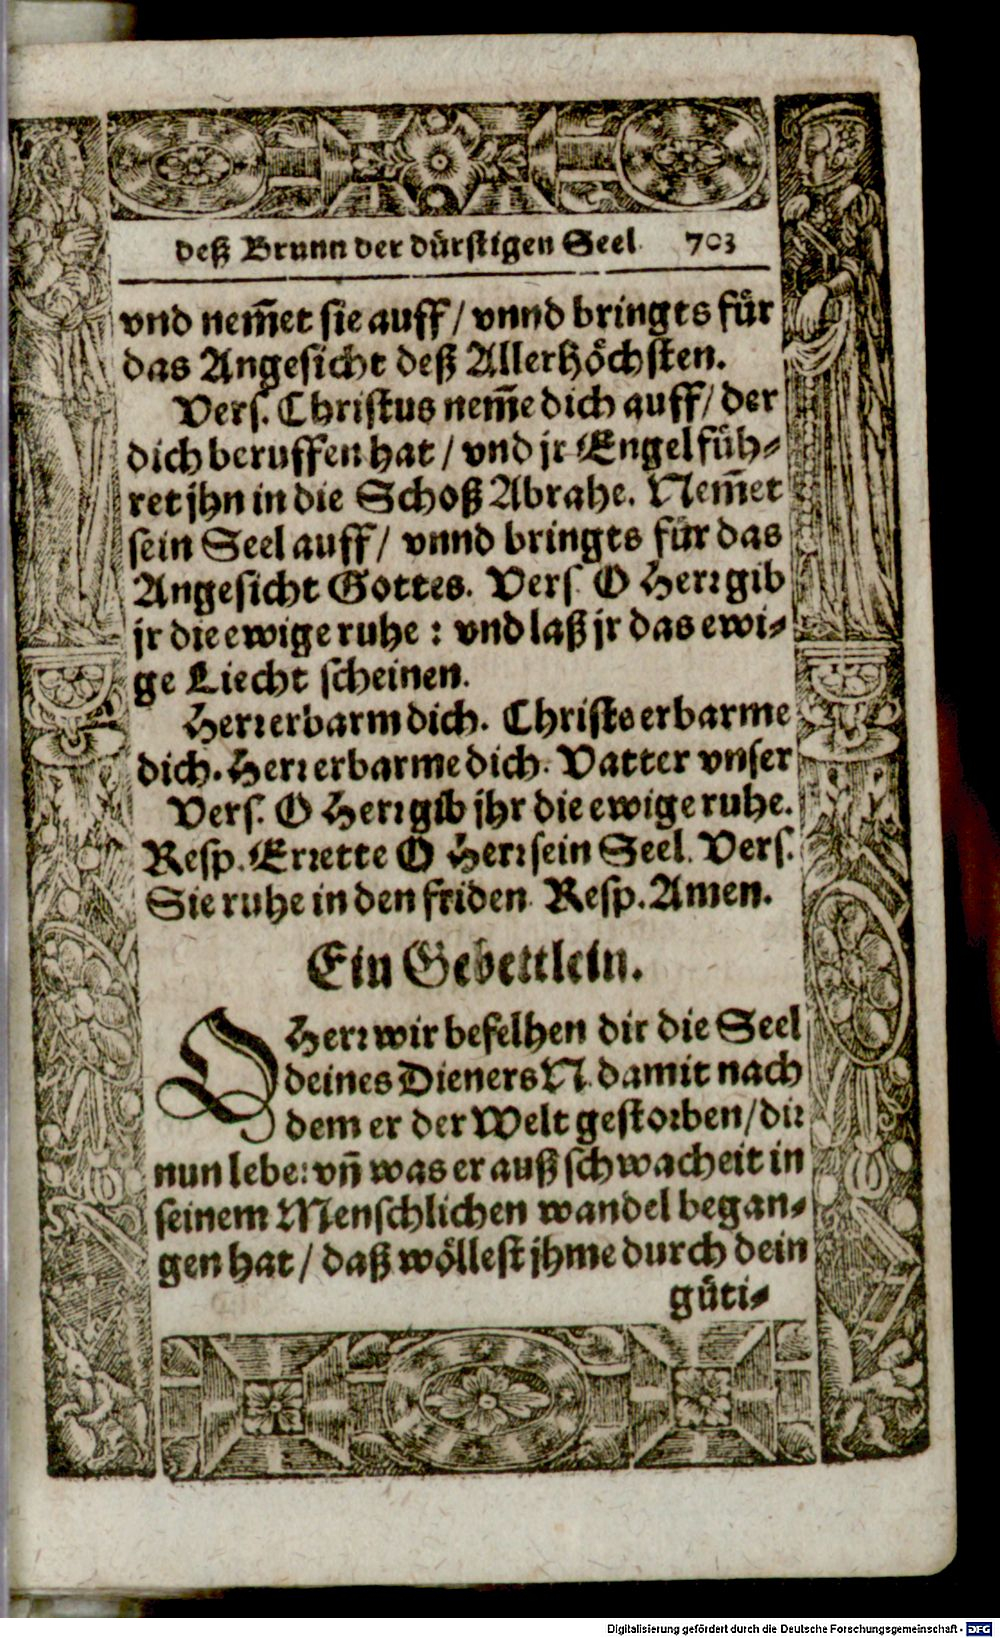 deß Brunn der dürstigen Seel. 703
vnd nem̅et sie auff / vnnd bringts für
das Angesicht deß Allerhöchsten.
Vers. Christus nem̅e dich auff / der
dich beruffen hat / vnd jr Engel füh-
ret jhn in die Schoß Abrahe. Nem̅et
sein Seel auff / vnnd bringts für das
Angesicht Gottes. Vers. O Herr gib
jr die ewige ruhe : vnd laß jr das ewi-
ge Liecht scheinen.
Herr erbarm dich. Christe erbarme
dich. Herr erbarme dich. Vatter vnser
Vers. O Herr gib jhr die ewige ruhe.
Resp. Errette O Herr sein Seel. Vers.
Sie ruhe in den friden. Resp. Amen.
Ein Gebettlein.
O Herr wir befelhen dir die Seel
deines Dieners N. damit nach
dem er der Welt gestorben / dir
nun lebe: vn̅ was er auß schwacheit in
seinem Menschlichen wandel began-
gen hat / daß wöllest jhme durch dein
güti-
Digitalisierung gefördert durch die Deutsche Forschungsgemeinschaft - DFG